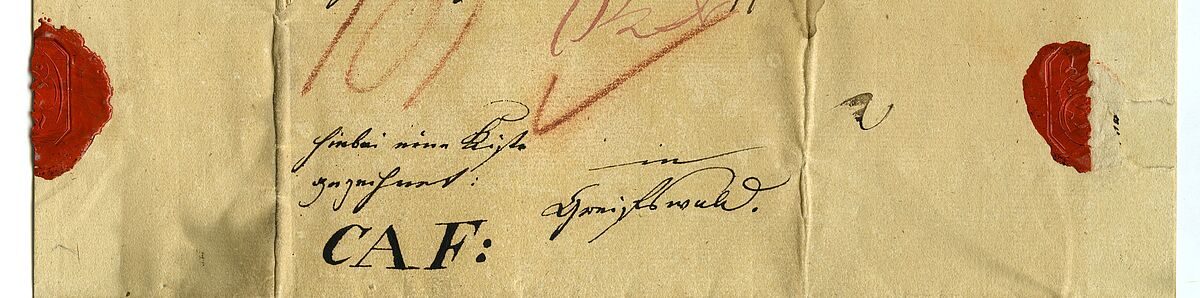 hiebei eine Kiste
gezeichnet:
CAF:
in
Greifswald.